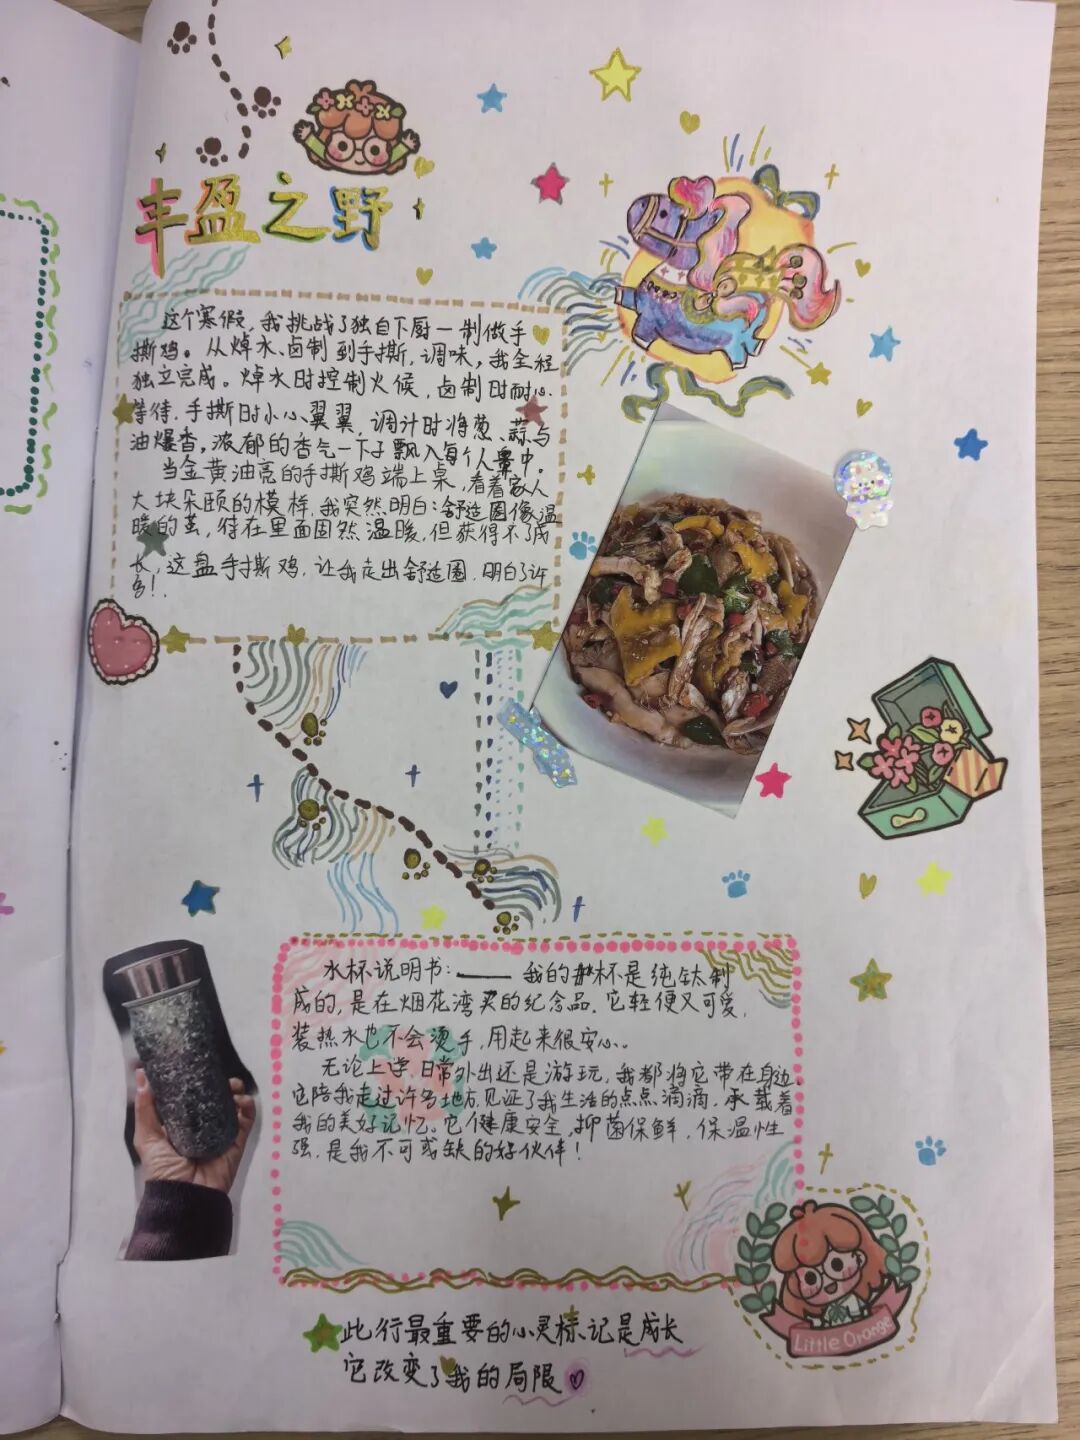 丰盈之野
这个寒假，我挑战了独自下厨一制做手
撕鸡。从焯水、卤制到手撕，调味，我全程
独立完成。焯水时控制火候，卤制时耐心
等待，手撕时小心翼翼，调汁时将葱、蒜与
油爆香，浓郁的香气一下子飘入每个人鼻中。
当金黄油亮的手撕鸡端上桌，看着家人
大块朵颐的模样，我突然明白：舒适圈像温
暖的茧，待在里面固然温暖，但获得不了成
长，这盘手撕鸡，让我走出舒适圈，明白了许
多！
水杯说明书：—— 我的水杯是纯钛制
成的，是在烟花湾买的纪念品。它轻便又可爱，
装热水也不会烫手，用起来很安心。
无论上学，日常外出还是游玩，我都将它带在身边，
它陪我走过许多地方，见证了我生活的点点滴滴，承载着
我的美好记忆。它健康安全，抑菌保鲜，保温性
强，是我不可或缺的好伙伴！
Little Orange
此行最重要的心灵标记是成长
它改变了我的局限